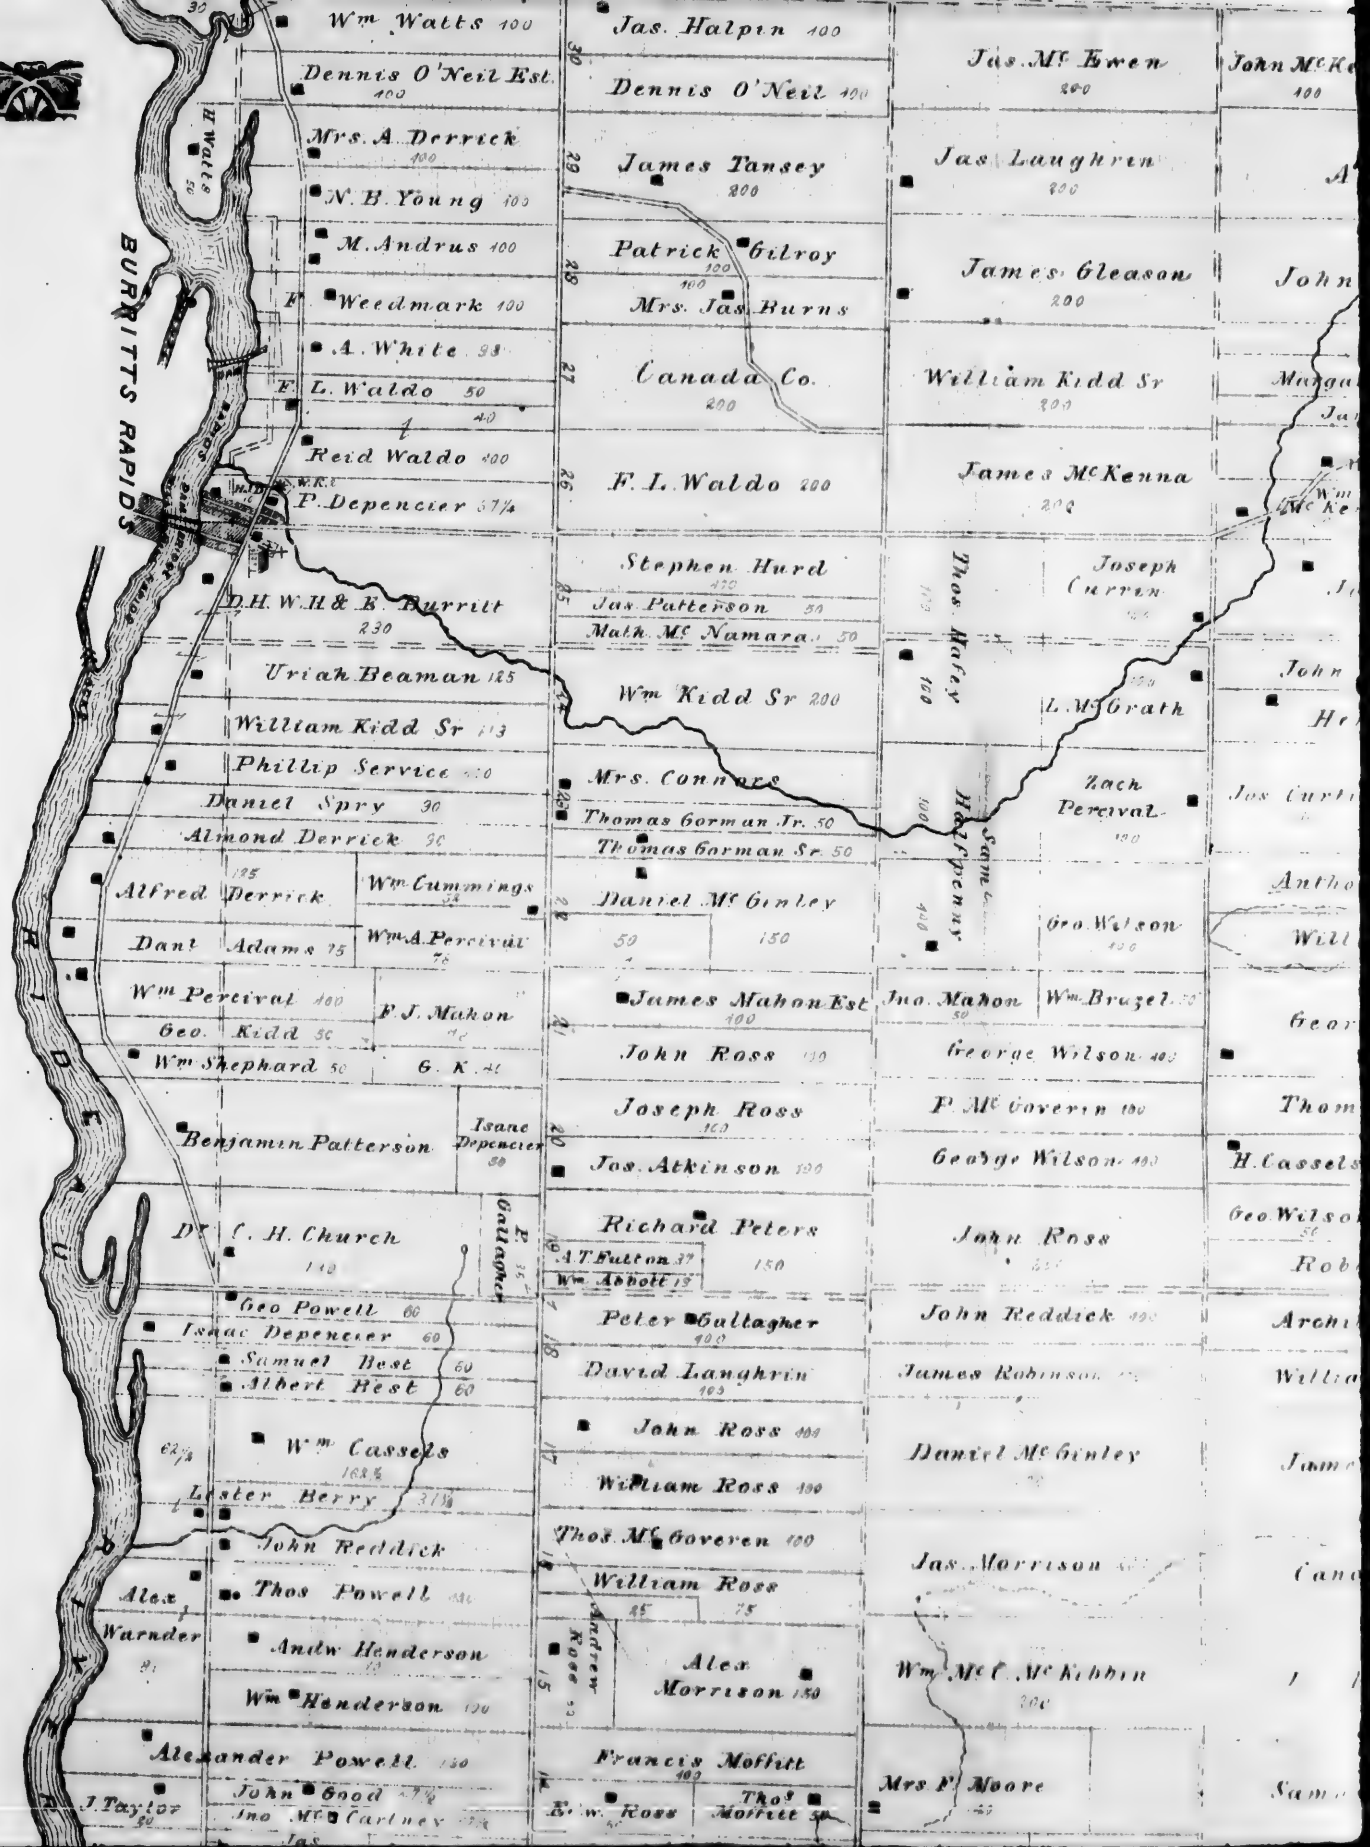 30
Wm Watts 100
Dennis O'Neil Est.
100
H Watts
50
Mrs. A Derrick
100
N. B. Young 100
M. Andrus 100
F Weedmark 100
A. White 98
F. L. Waldo 50
40
Reid Waldo 100
P. Depencier 57¼
BURRITTS RAPIDS
DAM
D.H. W.H & E. Burritt
230
Uriah Beaman 125
William Kidd Sr 113
Phillip Service
Daniel Spry 90
Almond Derrick 90
125
Alfred Derrick
Wm Cummings
Danl Adams 75
Wm A. Percival
Wm Percival 100
F. J. Mahon
Geo. Kidd 50
Wm Shephard 50
G. K.
Benjamin Patterson
Isaac
Depencier
50
Dr C. H. Church
P.
Gallagher
Geo Powell 60
Isaac Depencier 60
Samuel Best 60
Albert Best 60
62½
Wm Cassels
162½
Lester Berry
John Reddick
Alex
Warnder
Thos Powell
Andw Henderson
Wm Henderson 100
Alexander Powell
J. Taylor
John Good
Jno Mc Cartney
Jas
RIDEAU RIVER
30
Jas. Halpin 100
Dennis O'Neil 100
29
James Tansey
200
28
Patrick Gilroy
100
100
Mrs. Jas Burns
27
Canada Co.
200
26
F. L. Waldo 200
25
Stephen Hurd
Jas Patterson 50
Math Mc Namara 50
Wm Kidd Sr 200
Mrs. Connors
Thomas Gorman Jr. 50
Thomas Gorman Sr 50
22
Daniel Mc Ginley
50
150
21
James Mahon Est
100
John Ross 100
20
Joseph Ross
100
Jos. Atkinson 100
19
Richard Peters
A.T. Fulton 37
Wm Abbott 13
150
18
Peter Gallagher
100
David Laughrin
100
17
John Ross 100
William Ross 100
Thos. Mc Goveren 100
William Ross
25
75
15
Andrew
Ross
Alex
Morrison 150
14
Francis Moffitt
100
E. W. Ross
Thos
Moffitt 50
Jas. Mc Ewen
200
Jas Laughrin
200
James Gleason
200
William Kidd Sr
200
James Mc Kenna
200
Thos. Hafey
100
100
Joseph
Currin
L. Mc Grath
Saml
Halfpenny
100
100
Zach
Percival
100
Geo. Wilson
100
Jno. Mahon
50
Wm Brazel
George Wilson 100
P. Mc Goverin 100
George Wilson 100
John Ross
John Reddick 100
James Robinson
Daniel Mc Ginley
Jas. Morrison
Wm Mc C. Mc Kibbin
200
Mrs F. Moore
John Mc Ke
100
A
John
Marga
Ja
Wm
Mc Ke
John
He
Jos Curti
Antho
Will
Geor
Thom
H. Cassels
Geo. Wilso
50
Rob
Archi
Willia
Jame
Cana
Sam